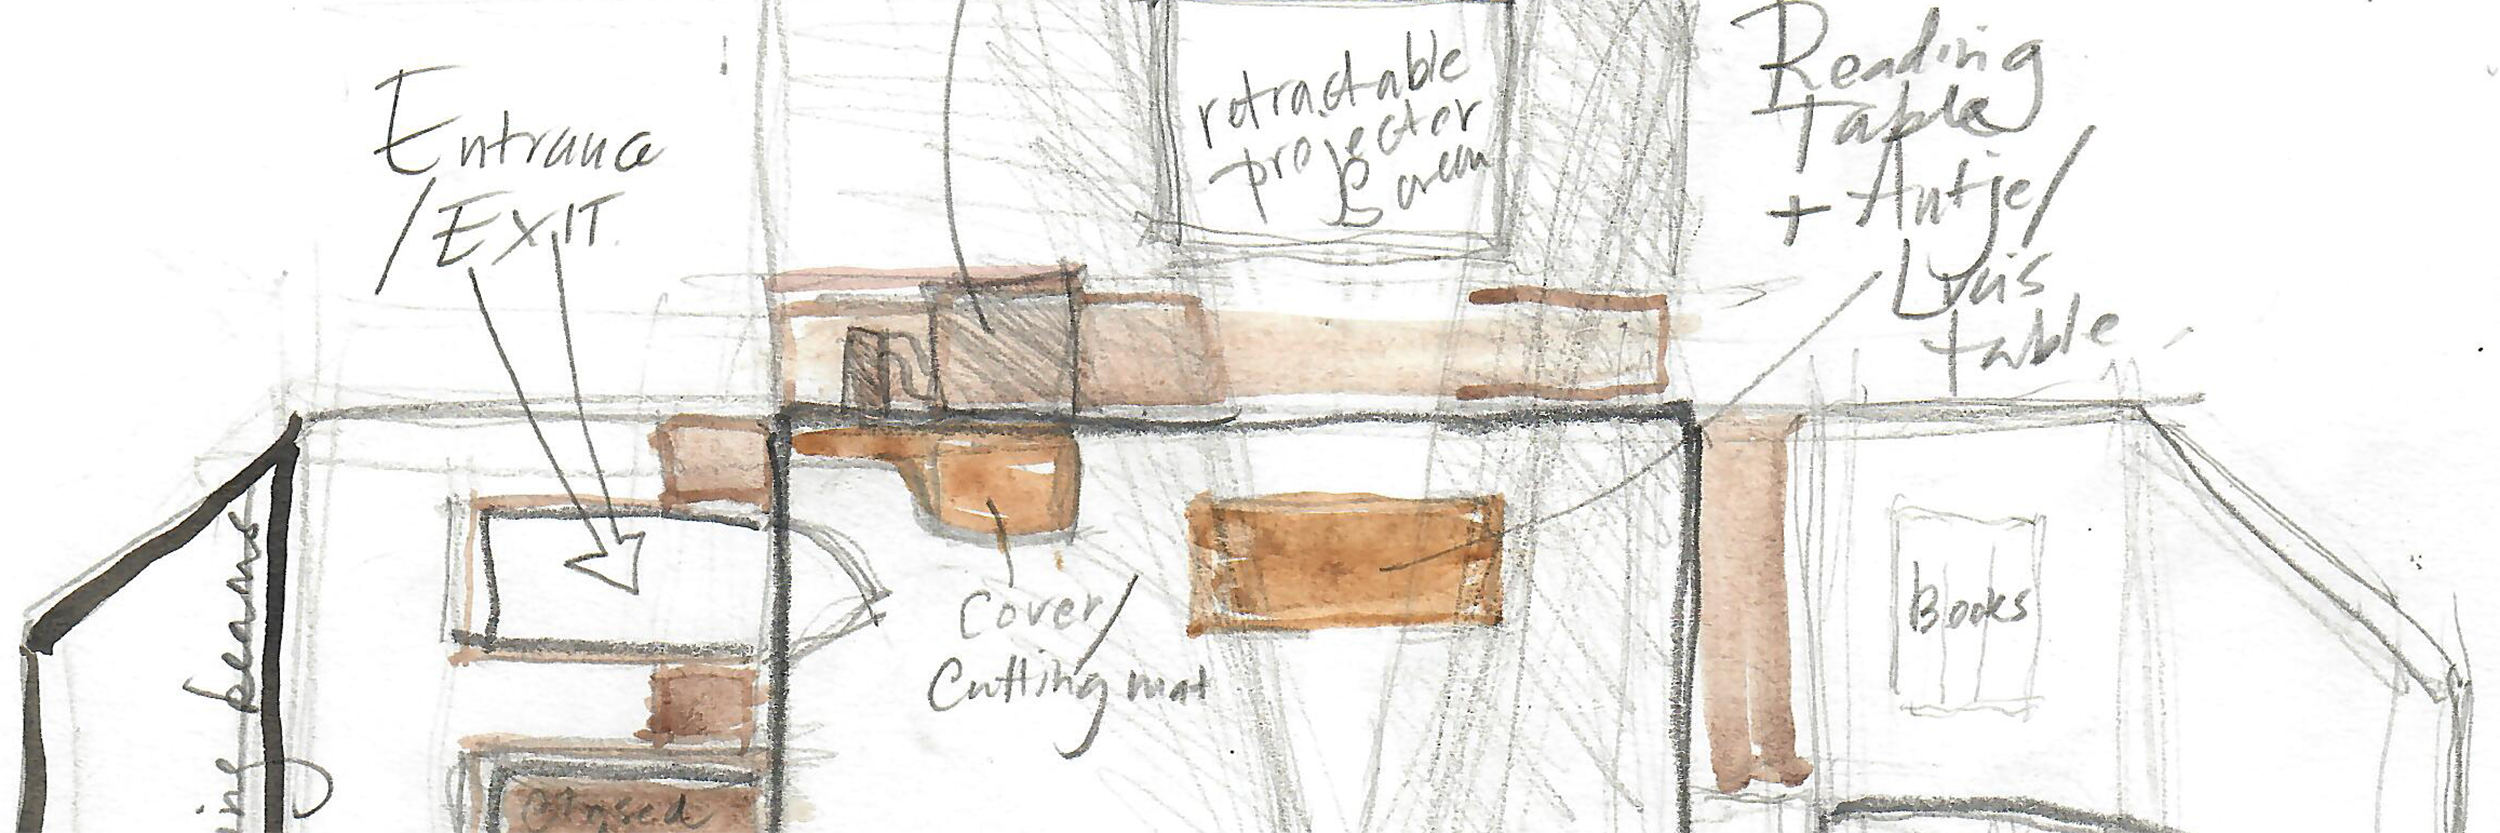 Entrance
/EXIT.
retractable
projector
Screen
Reading
Table
+ Antje/
Luis
table
beams
Cover/
Cutting mat
Books